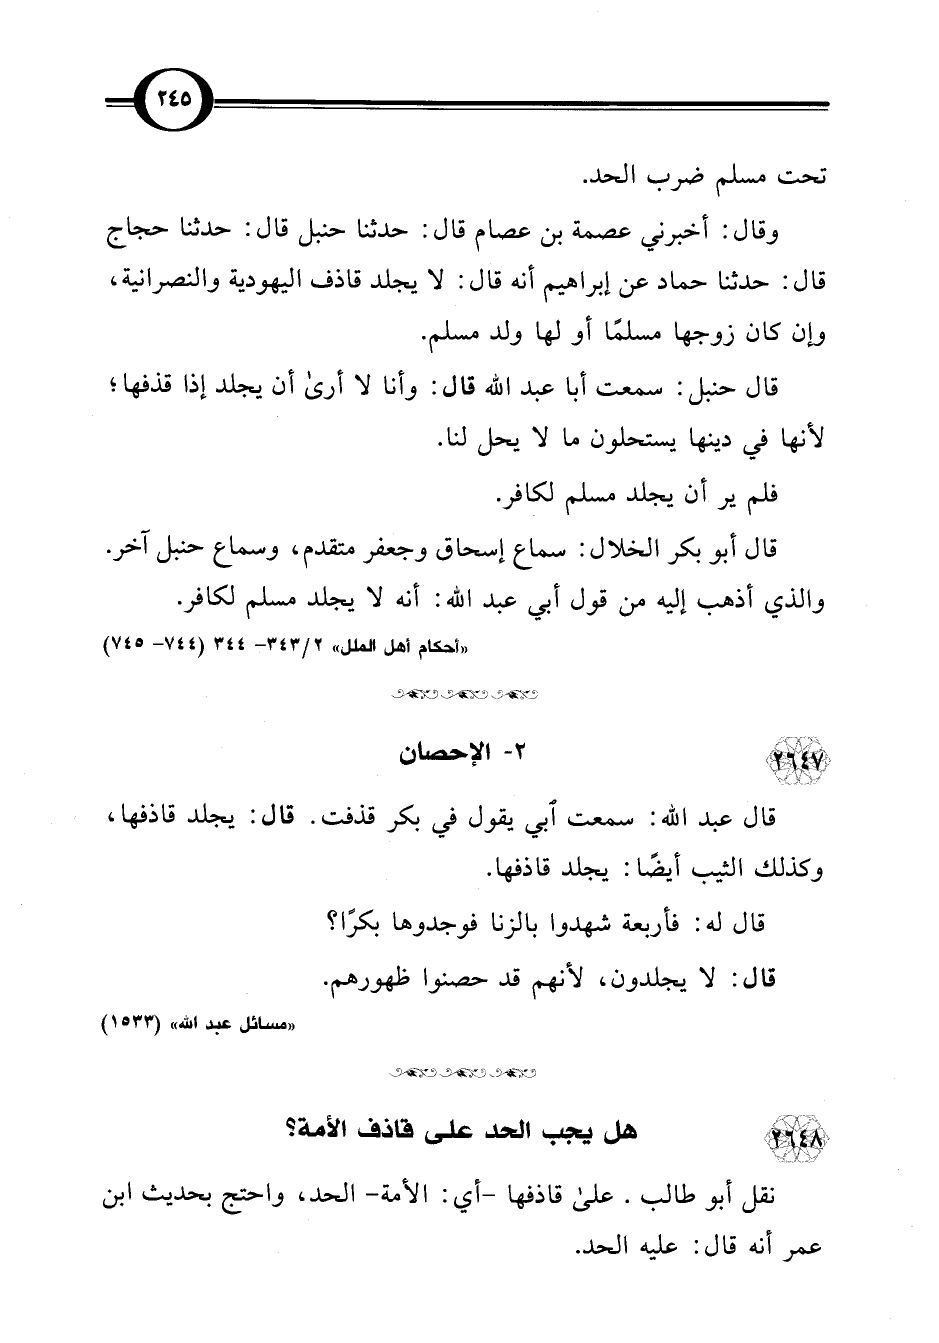 ٢٤٥
تحت مسلم ضرب الحد.
وقال: أخبرني عصمة بن عصام قال: حدثنا حنبل قال: حدثنا حجاج
قال: حدثنا حماد عن إبراهيم أنه قال: لا يجلد قاذف اليهودية والنصرانية،
وإن كان زوجها مسلمًا أو لها ولد مسلم.
قال حنبل: سمعت أبا عبد الله قال: وأنا لا أرىٰ أن يجلد إذا قذفها؛
لأنها في دينها يستحلون ما لا يحل لنا.
فلم ير أن يجلد مسلم لكافر.
قال أبو بكر الخلال: سماع إسحاق وجعفر متقدم، وسماع حنبل آخر.
والذي أذهب إليه من قول أبي عبد الله: أنه لا يجلد مسلم لكافر.
«أحكام أهل الملل» ٢/٣٤٣- ٣٤٤ (٧٤٤- ٧٤٥)
٢٦٤٧ ٢- الإحصان
قال عبد الله: سمعت أبي يقول في بكر قذفت. قال: يجلد قاذفها،
وكذلك الثيب أيضًا: يجلد قاذفها.
قال له: فأربعة شهدوا بالزنا فوجدوها بكرًا؟
قال: لا يجلدون، لأنهم قد حصنوا ظهورهم.
«مسائل عبد الله» (١٥٣٣)
٢٦٤٨ هل يجب الحد على قاذف الأمة؟
نقل أبو طالب . علىٰ قاذفها -أي: الأمة- الحد، واحتج بحديث ابن
عمر أنه قال: عليه الحد.